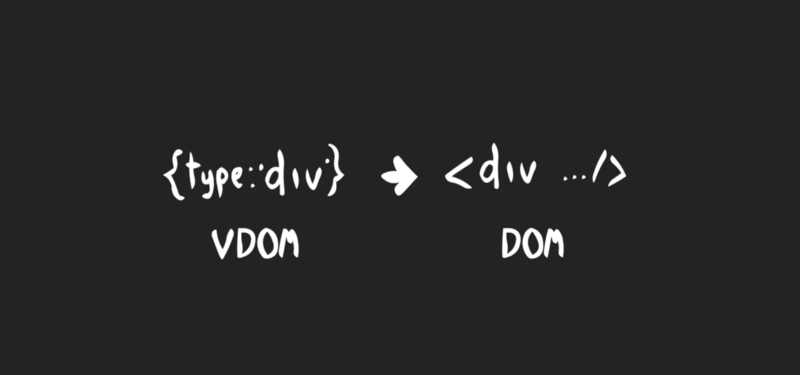 {type:'div'} → <div .../>
VDOM DOM